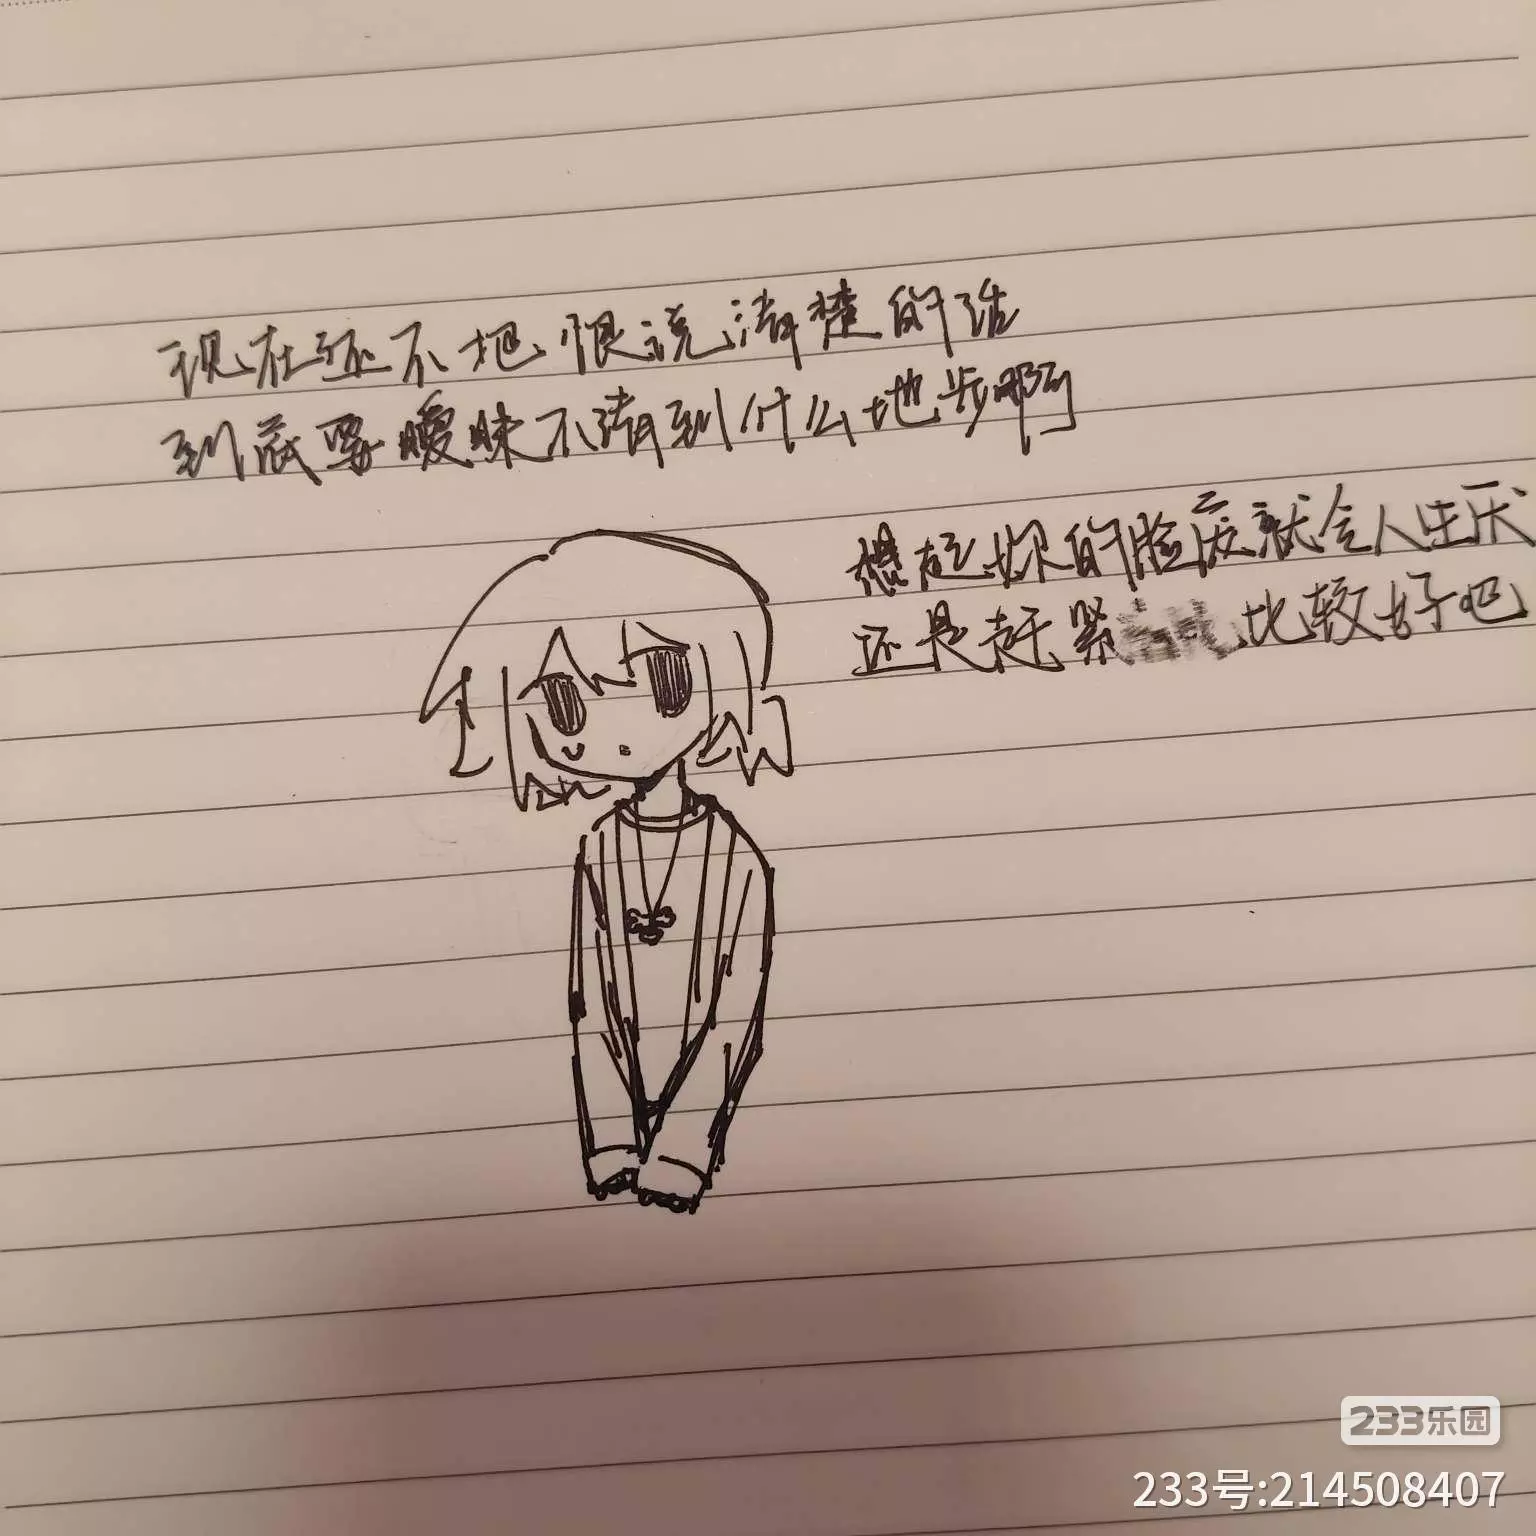 现在还不把恨说清楚的话
到底要暧昧不清到什么地步啊
想起妳的脸庞就令人生厌
还是赶紧比较好吧
233乐园
233号:214508407